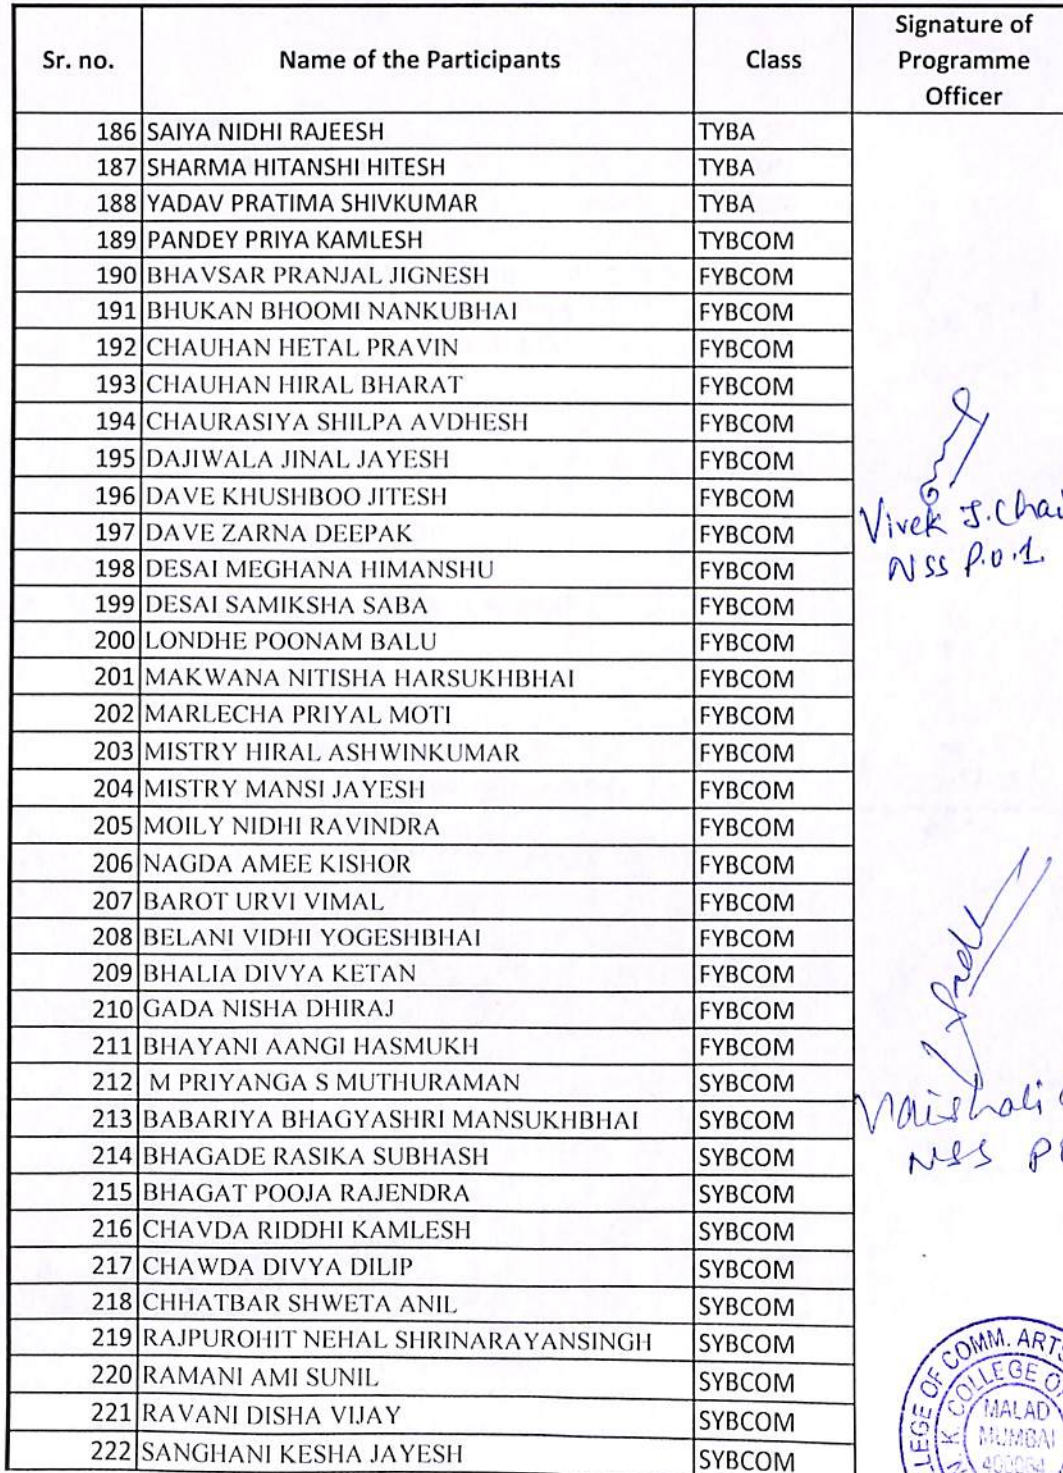 Sr. no. Name of the Participants Class Signature of Programme Officer
186 SAIYA NIDHI RAJEESH TYBA
187 SHARMA HITANSHI HITESH TYBA
188 YADAV PRATIMA SHIVKUMAR TYBA
189 PANDEY PRIYA KAMLESH TYBCOM
190 BHAVSAR PRANJAL JIGNESH FYBCOM
191 BHUKAN BHOOMI NANKUBHAI FYBCOM
192 CHAUHAN HETAL PRAVIN FYBCOM
193 CHAUHAN HIRAL BHARAT FYBCOM
194 CHAURASIYA SHILPA AVDHESH FYBCOM
195 DAJIWALA JINAL JAYESH FYBCOM
196 DAVE KHUSHBOO JITESH FYBCOM
197 DAVE ZARNA DEEPAK FYBCOM
198 DESAI MEGHANA HIMANSHU FYBCOM
199 DESAI SAMIKSHA SABA FYBCOM
200 LONDHE POONAM BALU FYBCOM
201 MAKWANA NITISHA HARSUKHBHAI FYBCOM
202 MARLECHA PRIYAL MOTI FYBCOM
203 MISTRY HIRAL ASHWINKUMAR FYBCOM
204 MISTRY MANSI JAYESH FYBCOM
205 MOILY NIDHI RAVINDRA FYBCOM
206 NAGDA AMEE KISHOR FYBCOM
207 BAROT URVI VIMAL FYBCOM
208 BELANI VIDHI YOGESHBHAI FYBCOM
209 BHALIA DIVYA KETAN FYBCOM
210 GADA NISHA DHIRAJ FYBCOM
211 BHAYANI AANGI HASMUKH FYBCOM
212 M PRIYANGA S MUTHURAMAN SYBCOM
213 BABARIYA BHAGYASHRI MANSUKHBHAI SYBCOM
214 BHAGADE RASIKA SUBHASH SYBCOM
215 BHAGAT POOJA RAJENDRA SYBCOM
216 CHAVDA RIDDHI KAMLESH SYBCOM
217 CHAWDA DIVYA DILIP SYBCOM
218 CHHATBAR SHWETA ANIL SYBCOM
219 RAJPUROHIT NEHAL SHRINARAYANSINGH SYBCOM
220 RAMANI AMI SUNIL SYBCOM
221 RAVANI DISHA VIJAY SYBCOM
222 SANGHANI KESHA JAYESH SYBCOM
Vivek J. Chai
NSS P.O.1.
Vaishali
NSS P
OF COMM. ARTS
K. COLLEGE O
MALAD
MUMBAI
400064